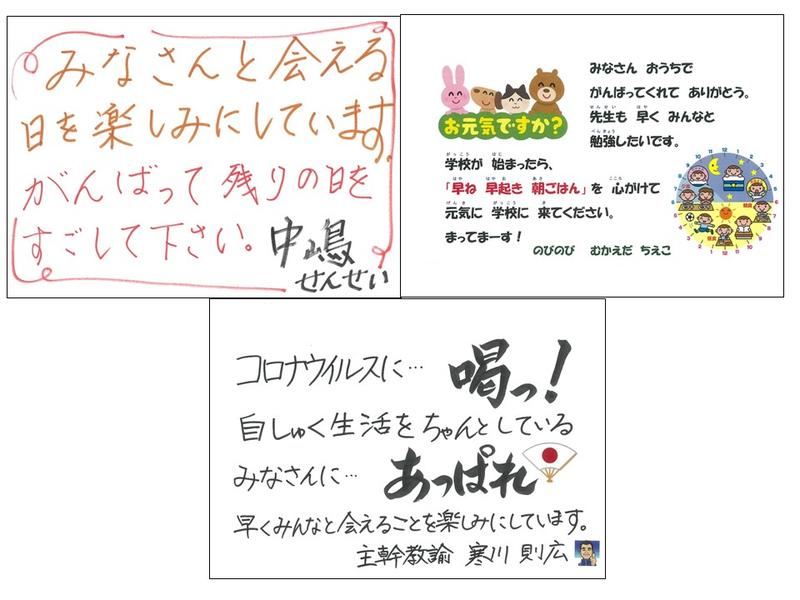 みなさんと会える
日を楽しみにしています。
がんばって残りの日を
すごして下さい。
中嶋
せんせい
お元気ですか?
みなさん おうちで
がんばってくれて ありがとう。
先生も 早く みんなと
勉強したいです。
学校が 始まったら、
「早ね 早起き 朝ごはん」を 心がけて
元気に 学校に 来てください。
まってまーす!
のびのび むかえだ ちえこ
コロナウイルスに… 喝っ!
自しゅく生活をちゃんとしている
みなさんに… あっぱれ
早くみんなと会えることを楽しみにしています。
主幹教諭 寒川 則広